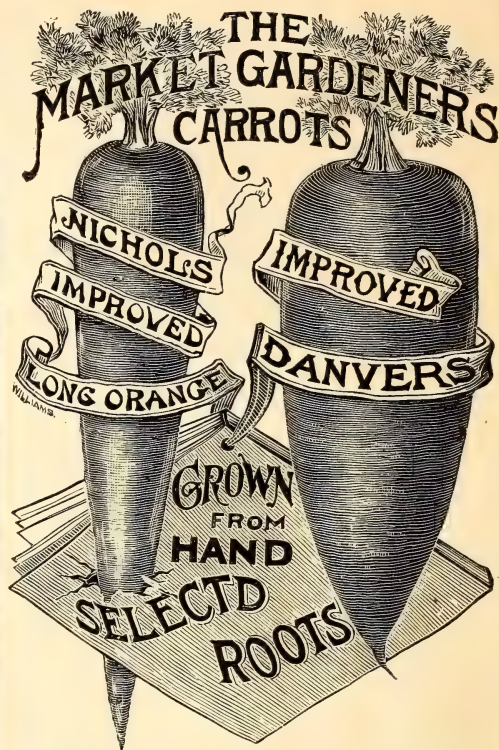 THE
MARKET GARDENERS
CARROTS
NICHOL'S
IMPROVED
LONG ORANGE
WILLIAMS.
IMPROVED
DANVERS
GROWN
FROM
HAND
SELECTD
ROOTS